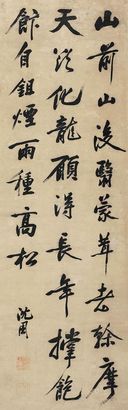 山前山後翳蒙茸老幹摩
天從化龍願得長年撐飽
飯自鉏煙雨種高松
沈周